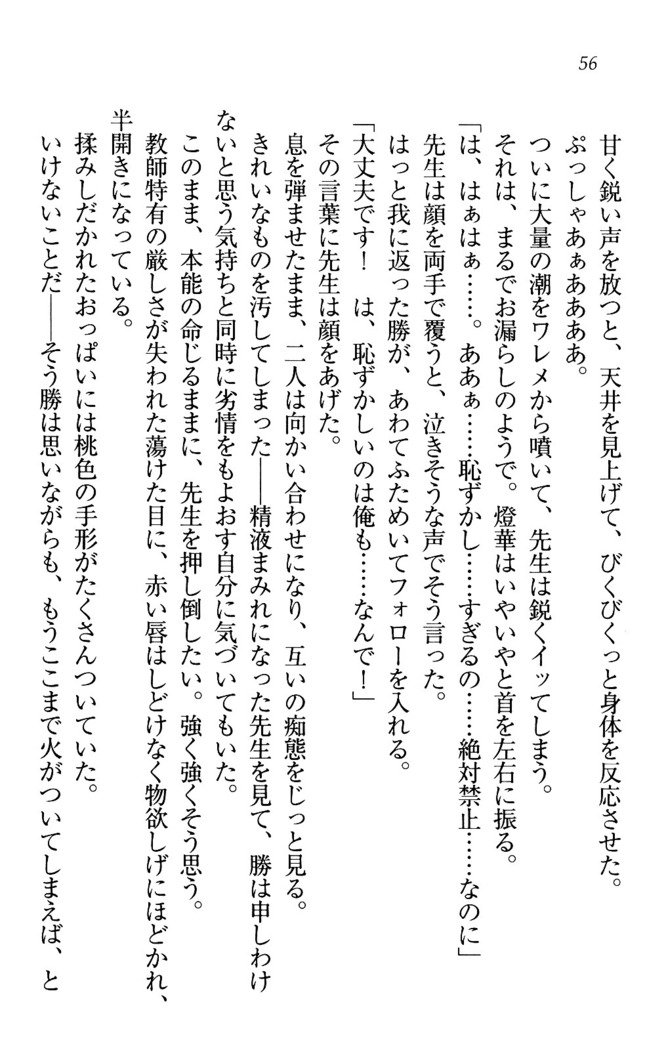 56
甘く鋭い声を放つと、天井を見上げて、びくびくっと身体を反応させた。
ぷっしゃあぁああああ。
ついに大量の潮をワレメから噴いて、先生は鋭くイッてしまう。
それは、まるでお漏らしのようで。燈華はいやいやと首を左右に振る。
「は、はぁはぁ……。ああぁ……恥ずかし……すぎるの……絶対禁止……なのに」
先生は顔を両手で覆うと、泣きそうな声でそう言った。
はっと我に返った勝が、あわてふためいてフォローを入れる。
「大丈夫です！　は、恥ずかしいのは俺も……なんで！」
その言葉に先生は顔をあげた。
息を弾ませたまま、二人は向かい合わせになり、互いの痴態をじっと見る。
きれいなものを汚してしまった――精液まみれになった先生を見て、勝は申しわけ
ないと思う気持ちと同時に劣情をもよおす自分に気づいてもいた。
このまま、本能の命じるままに、先生を押し倒したい。強く強くそう思う。
教師特有の厳しさが失われた蕩けた目に、赤い唇はしどけなく物欲しげにほどかれ、
半開きになっている。
揉みしだかれたおっぱいには桃色の手形がたくさんついていた。
いけないことだ――そう勝は思いながらも、もうここまで火がついてしまえば、と